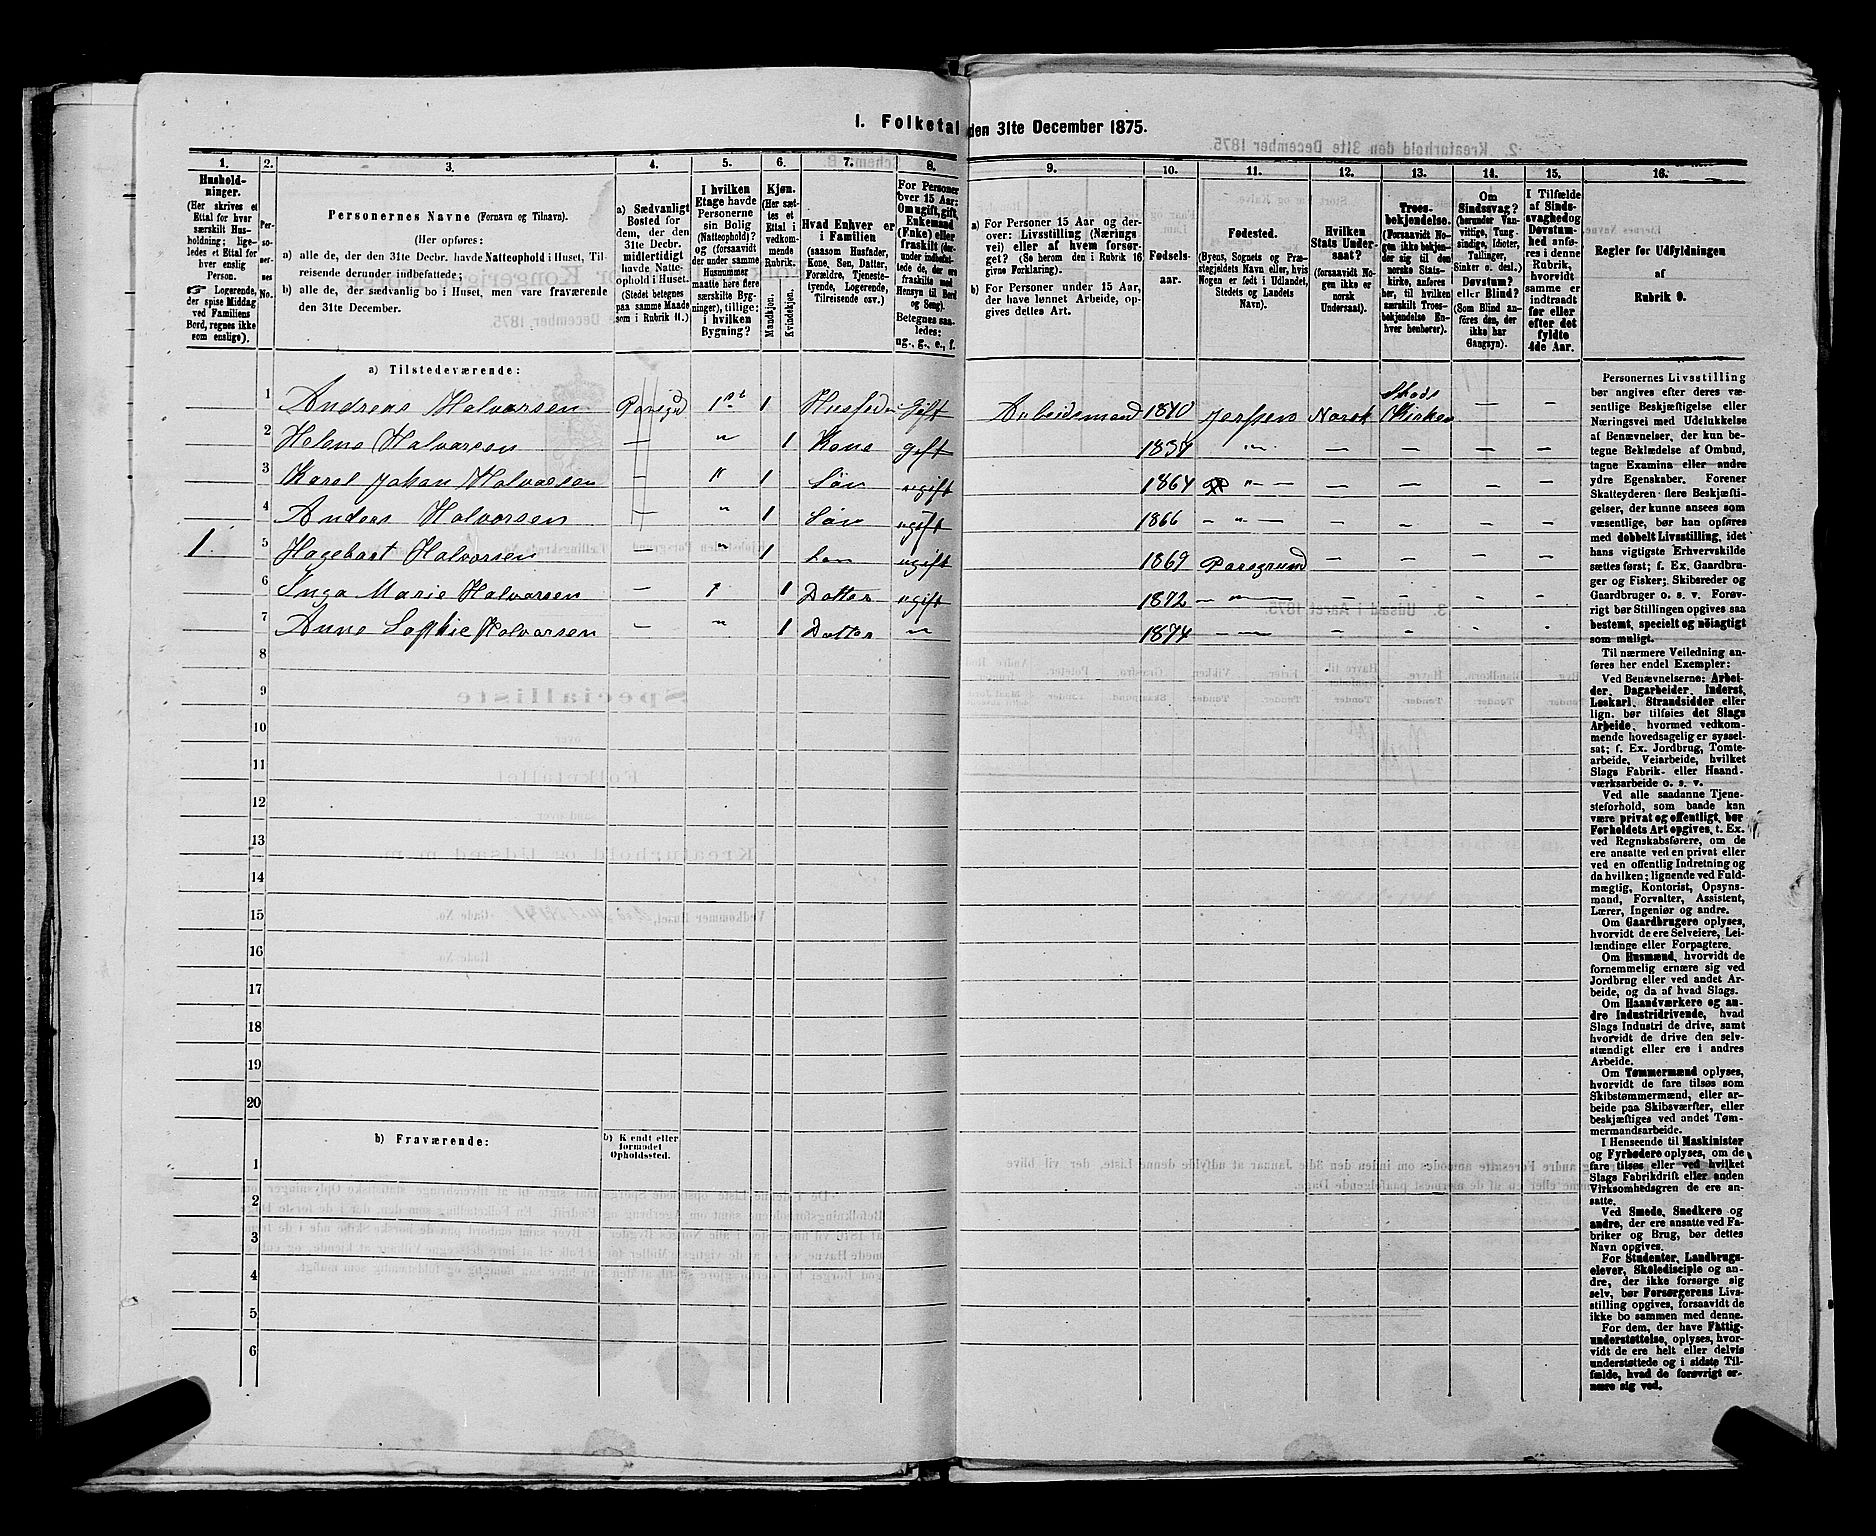 I. Folketal den 31te December 1875.
1. 2. 3. 4. 5. 6. 7. 8. 9. 10. 11. 12. 13. 14. 15. 16.
Husholdninger.
(Her skrives et
Ettal for hver
særskilt Husholdning;
ligeledes et Ettal for
hver enslig
Person.
Logerende,
der spise Middag
ved Familiens
Bord, regnes ikke
som enslige).
Personernes No.
Personernes Navne (Fornavn og Tilnavn).
(Her opføres:
a) alle de, der den 31te Decbr. havde Natteophold i Huset, Tilreisende derunder indbefattede;
b) alle de, der sædvanlig bo i Huset, men vare fraværende
den 31te December.
a) Sædvanligt
Bosted for
dem, der den
31te Decbr.
midlertidigt
havde Natteophold i Huset.
(Stedet betegnes
paa samme Maade
som i Rubrik 11.)
I hvilken
Etage havde
Personerne
sin Bolig
(Natteophold)?
og (forsaavidt
der under samme
Husnummer
maatte høre flere
særskilte Bygninger), tillige:
i hvilken
Bygning?
Kjøn.
(Her sættes et
Ettal i
vedkommende
Rubrik.
Mandkjøn.
Kvindekjøn.
Hvad Enhver er
i Familien
(saasom Husfader,
Kone, Søn, Datter,
Forældre, Tjenestetyende, Logerende,
Tilreisende osv.)
For Personer
over 15 Aar:
Om ugift, gift,
Enkemand
(Enke) eller
fraskilt (derunder indbefattede de, der ere
fraskilte med
Hensyn til Bord
og Seng).
Betegnes saaledes:
ug., g., e., f.
a) For Personer 15 Aar og derover: Livsstilling (Næringsvei) eller af hvem forsørget? (Se herom den i Rubrik 16
givne Forklaring).
b) For Personer under 15 Aar,
der have lønnet Arbeide, opgives dettes Art.
Fødselsaar.
Fødested.
(Byens, Sognets og Præstegjeldets Navn eller, hvis
Nogen er født i Udlandet,
Stedets og Landets
Navn).
Hvilken
Stats Undersaat?
(forsaavidt Nogen ikke er
norsk
Undersaat).
Troesbekjendelse.
(Forsaavidt Nogen ikke bekjender sig til den
norske Statskirke, anføres
her, til hvilken
særskilt Troesbekjendelse Enhver henhører).
Om
Sindssvag?
(herunder Vanvittige, Tungsindige, Idioter,
Tullinger,
Sinker o. desl.)
Døvstum?
eller Blind?
(Som Blind anføres den, der
ikke har
Gangsyn).
I Tilfælde
af Sindssvaghed og
Døvstumhed anføres i denne
Rubrik,
hvorvidt
samme er
indtraadt
før eller
efter det
fyldte
4de Aar.
Regler for Udfyldningen
af
Rubrik 9.
a) Tilstedeværende:
1 Andreas Halvorsen 1st 1 Husfader Gift Arbeidsmand 1840 Norsk Stads Kirken — —
2 Helene Halvorsen — " 1 Kone gift 1834 " — — — —
3 Karel Johan Halvorsen — " 1 Søn ugift 1864 " — — — — —
4 Anders Halvorsen — " 1 Søn ugift 1866 — " — — — — —
1. 5 Hagebart Halvorsen — " 1 Søn ugift 1869 Porsgrund — — — —
6 Inga Marie Halvorsen — 1 Datter ugift 1872 — " — — — — —
7 Anne Sophie Halvorsen — " 1 Datter " 1874 — — — — — —
8
9
10
11
12
13
14
15
16
17
18
19
20
b) Fraværende:
b) Kjendt eller
formodet
Opholdssted.
1
2
3
4
5
6
Personernes Livsstilling
bør angives efter deres væsentlige Beskjæftigelse eller
Næringsvei med Udelukkelse
af Benævnelser, der kun betegne Beklædelse af Ombud,
tagne Examina eller andre
ydre Egenskaber. Forener
Skatteyderen flere Beskjæftigelser, der kunne ansees som
væsentlige, bør han opføres
med dobbelt Livsstilling, idet
hans vigtigste Erhvervskilde
sættes først; f. Ex. Gaardbruger og Fisker; Skibsreder og
Gaardbruger o. s. v. Forøvrigt bør Stillingen opgives saa
bestemt, specielt og nøiagtigt
som muligt.
Til nærmere Veiledning anføres her endel Exempler:
Ved Benævnelserne: Arbeider, Dagarbeider, Inderst,
Løskarl, Strandsidder eller
lign. bør tilføies det Slags
Arbeide, hvormed vedkommende hovedsagelig er sysselsat; f. Ex. Jordbrug, Tomtearbeide, Veiarbeide, hvilket
Slags Fabrik- eller Haandværksarbeide o. s. v.
Ved alle saadanne Tjenesteforhold, som baade kan
være privat og offentligt, bør
Forholdets Art opgives, t. Ex.
ved Regnskabsførere, om de
ere ansatte ved en privat eller
ved en offentlig Indretning og
da hvilken; lignende ved Fuldmægtig, Kontorist, Opsynsmand, Forvalter, Assistent,
Lærer, Ingeniør og andre.
Om Gaardbrugere oplyses,
hvorvidt de ere Selveiere, Leilændinge eller Forpagtere.
Om Husmænd, hvorvidt de
fornemmelig ernære sig ved
Jordbrug eller ved andet Arbeide, og da af hvad Slags.
Om Haandværkere og andre Industridrivende, hvad
Slags Industri de drive, samt
hvorvidt de drive den selvstændigt eller ere i andres
Arbeide.
Om Tømmermænd oplyses,
hvorvidt de fare tilsøs som
Skibstømmermænd, eller arbeide paa Skibsværfter, eller
beskjæftiges ved andet Tømmermandsarbeide.
I Henseende til Maskinister
og Fyrbødere oplyses, om de
fare tilsøs eller ved hvilket
Slags Fabrikdrift eller anden
Virksomhedsgren de ere ansatte.
Ved Smede, Snedkere og
andre, der ere ansatte ved Fabriker og Brug, bør dettes
Navn opgives.
For Studenter, Landbrugselever, Skoledisciple og andre, der ikke forsørge sig
selv, bør Forsørgerens Livsstilling opgives, forsaavidt de
ikke bo sammen med denne.
For dem, der have Fattigunderstøttelse, oplyses, hvorvidt de ere helt eller delvis
understøttede og i sidste Tilfælde, hvad de forøvrigt ernære sig ved.